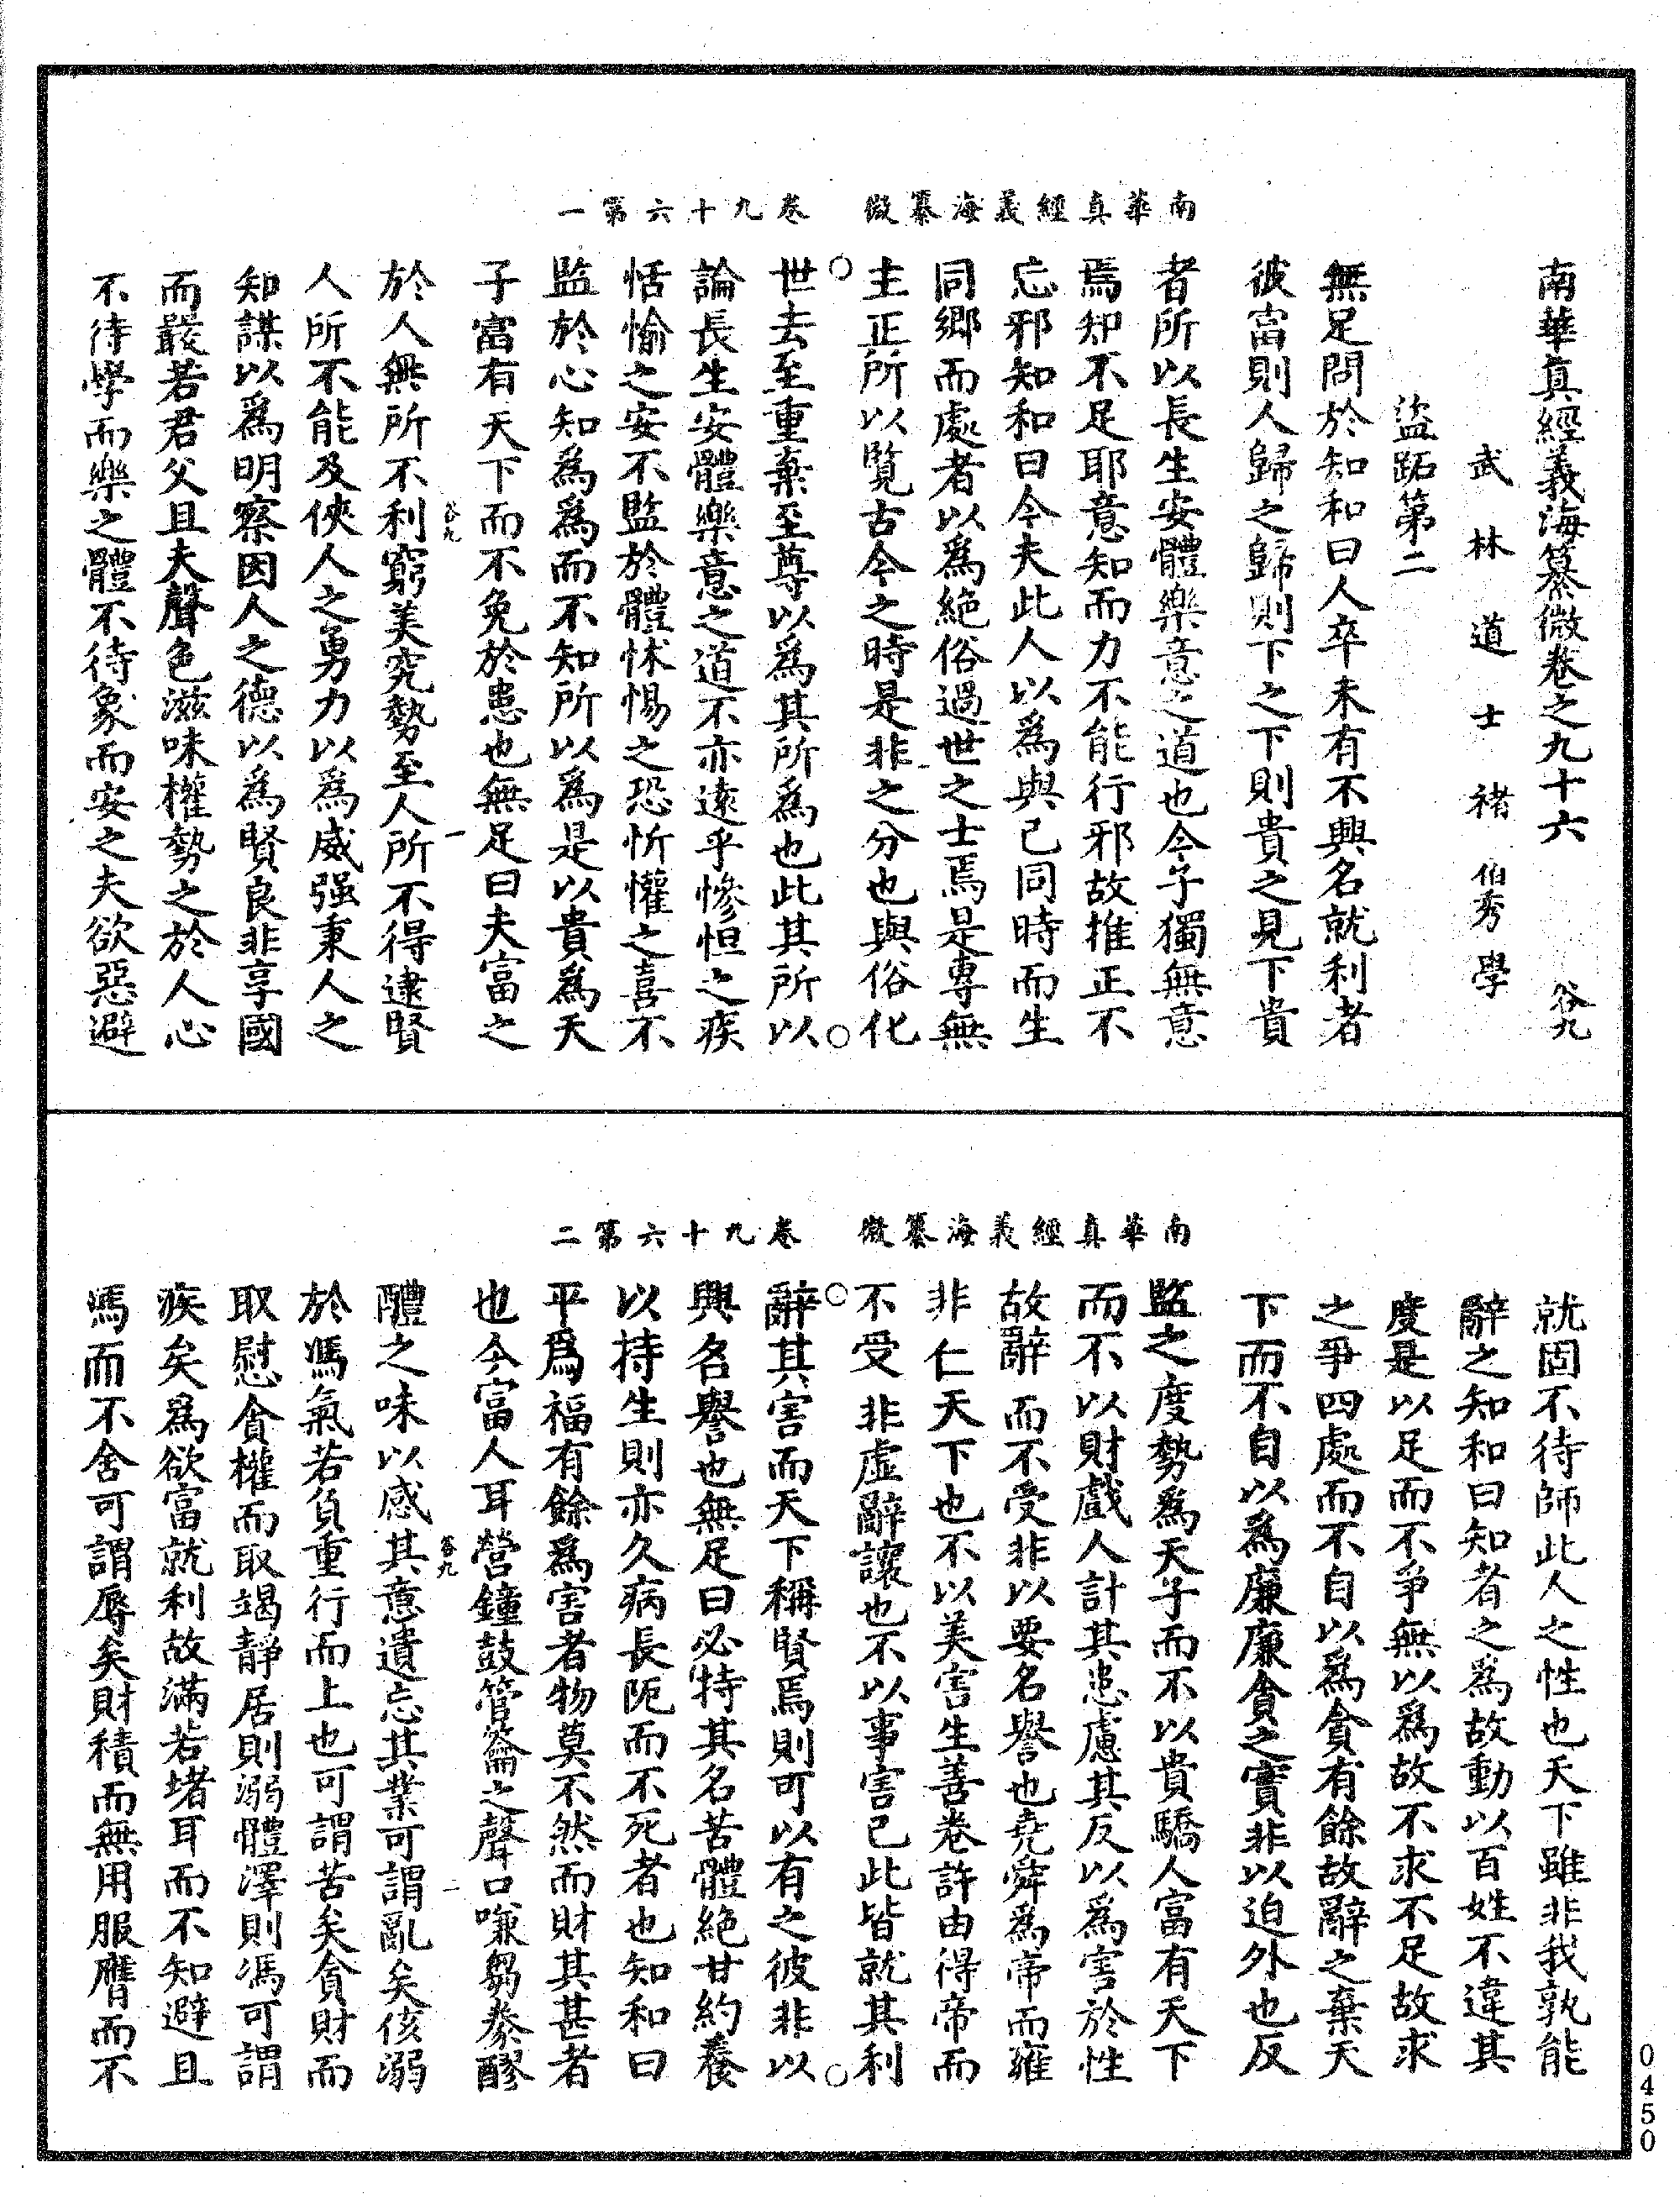 南華真經義海纂微　卷九十六第一
南華真經義海纂微卷之九十六　谷九
武林道士褚伯秀學
盜跖第二
無足問於知和曰人卒未有不興名就利者
彼富則人歸之歸則下之下則貴之見下貴
者所以長生安體樂意之道也今子獨無意
焉知不足耶意知而力不能行邪故推正不
忘邪知和曰今夫此人以爲與己同時而生
同鄉而處者以爲絕俗過世之士焉是專無
主正所以覽古今之時是非之分也與俗化
○　○
世去至重棄至尊以爲其所爲也此其所以
論長生安體樂意之道不亦遠乎慘怛之疾
恬愉之安不監於體怵惕之恐忻懽之喜不
監於心知爲爲而不知所以爲是以貴爲天
子富有天下而不免於患也無足曰夫富之
谷九　一
於人無所不利窮美究勢至人所不得逮賢
人所不能及俠人之勇力以爲威强秉人之
知謀以爲明察因人之德以爲賢良非享國
而嚴若君父且夫聲色滋味權勢之於人心
不待學而樂之體不待象而安之夫欲惡避
南華真經義海纂微　卷九十六第二
就固不待師此人之性也天下雖非我孰能
辭之知和曰知者之爲故動以百姓不違其
度是以足而不爭無以爲故不求不足故求
之爭四處而不自以爲貪有餘故辭之棄天
下而不自以爲廉廉貪之實非以迫外也反
監之度勢爲天子而不以貴驕人富有天下
而不以財戲人計其患慮其反以爲害於性
故辭而不受非以要名譽也堯舜爲帝而雍
非仁天下也不以美害生善卷許由得帝而
不受非虛辭讓也不以事害己此皆就其利
○　○
辭其害而天下稱賢焉則可以有之彼非以
興名譽也無足曰必持其名苦體絕甘約養
以持生則亦久病長阨而不死者也知和曰
平爲福有餘爲害者物莫不然而財其甚者
也今富人耳營鐘鼓管籥之聲口嗛芻豢醪
谷九　二
醴之味以感其意遺忘其業可謂亂矣侅溺
於馮氣若負重行而上也可謂苦矣貪財而
取慰貪權而取竭靜居則溺體澤則馮可謂
疾矣爲欲富就利故滿若堵耳而不知避且
馮而不舍可謂辱矣財積而無用服膺而不
0450